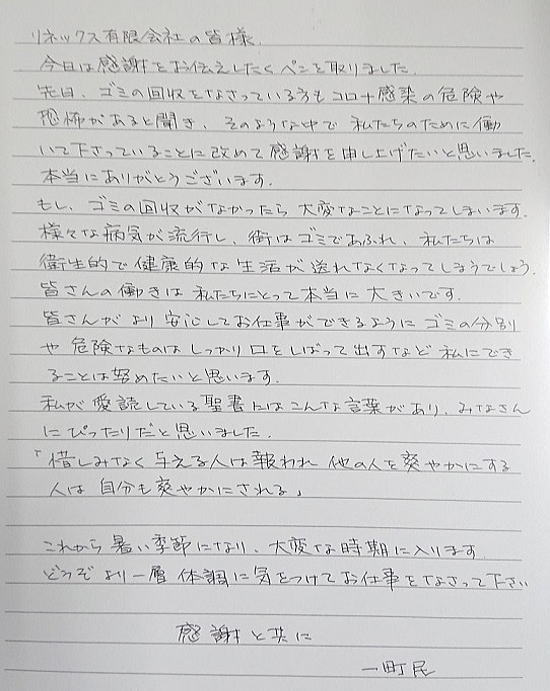 リネックス有限会社の皆様.
今日は感謝をお伝えしたくペンを取りました.
先日、ゴミの回収をなさっている方もコロナ感染の危険や
恐怖があると聞き、そのような中で 私たちのために働
いて下さっていることに改めて感謝を申し上げたいと思いました.
本当にありがとうございます.
もし、ゴミの回収がなかったら 大変なことになってしまいます.
様々な病気が流行し、街はゴミであふれ、私たちは
衛生的で健康的な生活が送れなくなってしまうでしょう.
皆さんの働きは 私たちにとって本当に大きいです.
皆さんがより安心してお仕事ができるように ゴミの分別
や 危険なものは しっかり口をしばって出すなど 私にでき
ることは努めたいと思います.
私が愛読している聖書にはこんな言葉があり、みなさん
にぴったりだと思いました.
「惜しみなく与える人は報われ 他の人を爽やかにする
人は 自分も爽やかにされる」
これから暑い季節になり、大変な時期に入ります
どうぞ より一層 体調に気をつけてお仕事をなさって下さい
感謝と共に
一町民